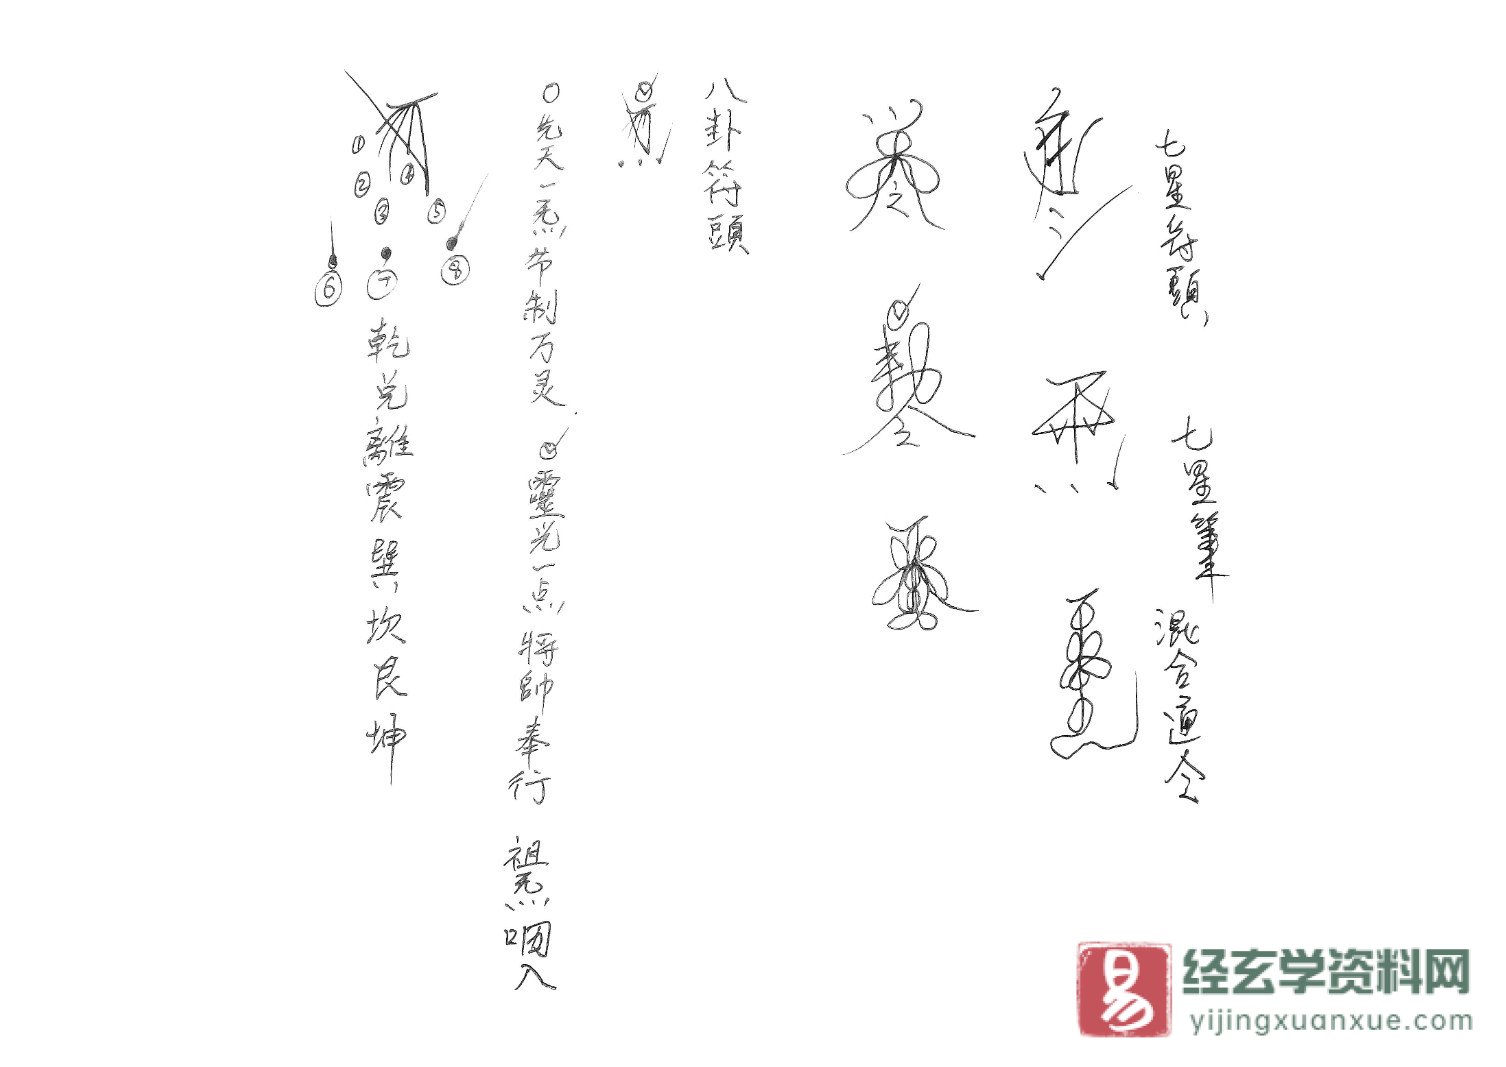 七星符頭
七星筆
混合道令
八卦符頭
○先天一炁节制万灵
靈光一点將帥奉行
祖炁咽入
①
②
③
④
⑤
⑥
⑦
⑧
乾兌離震巽坎艮坤
易
经玄学资料网
yijingxuanxue.com